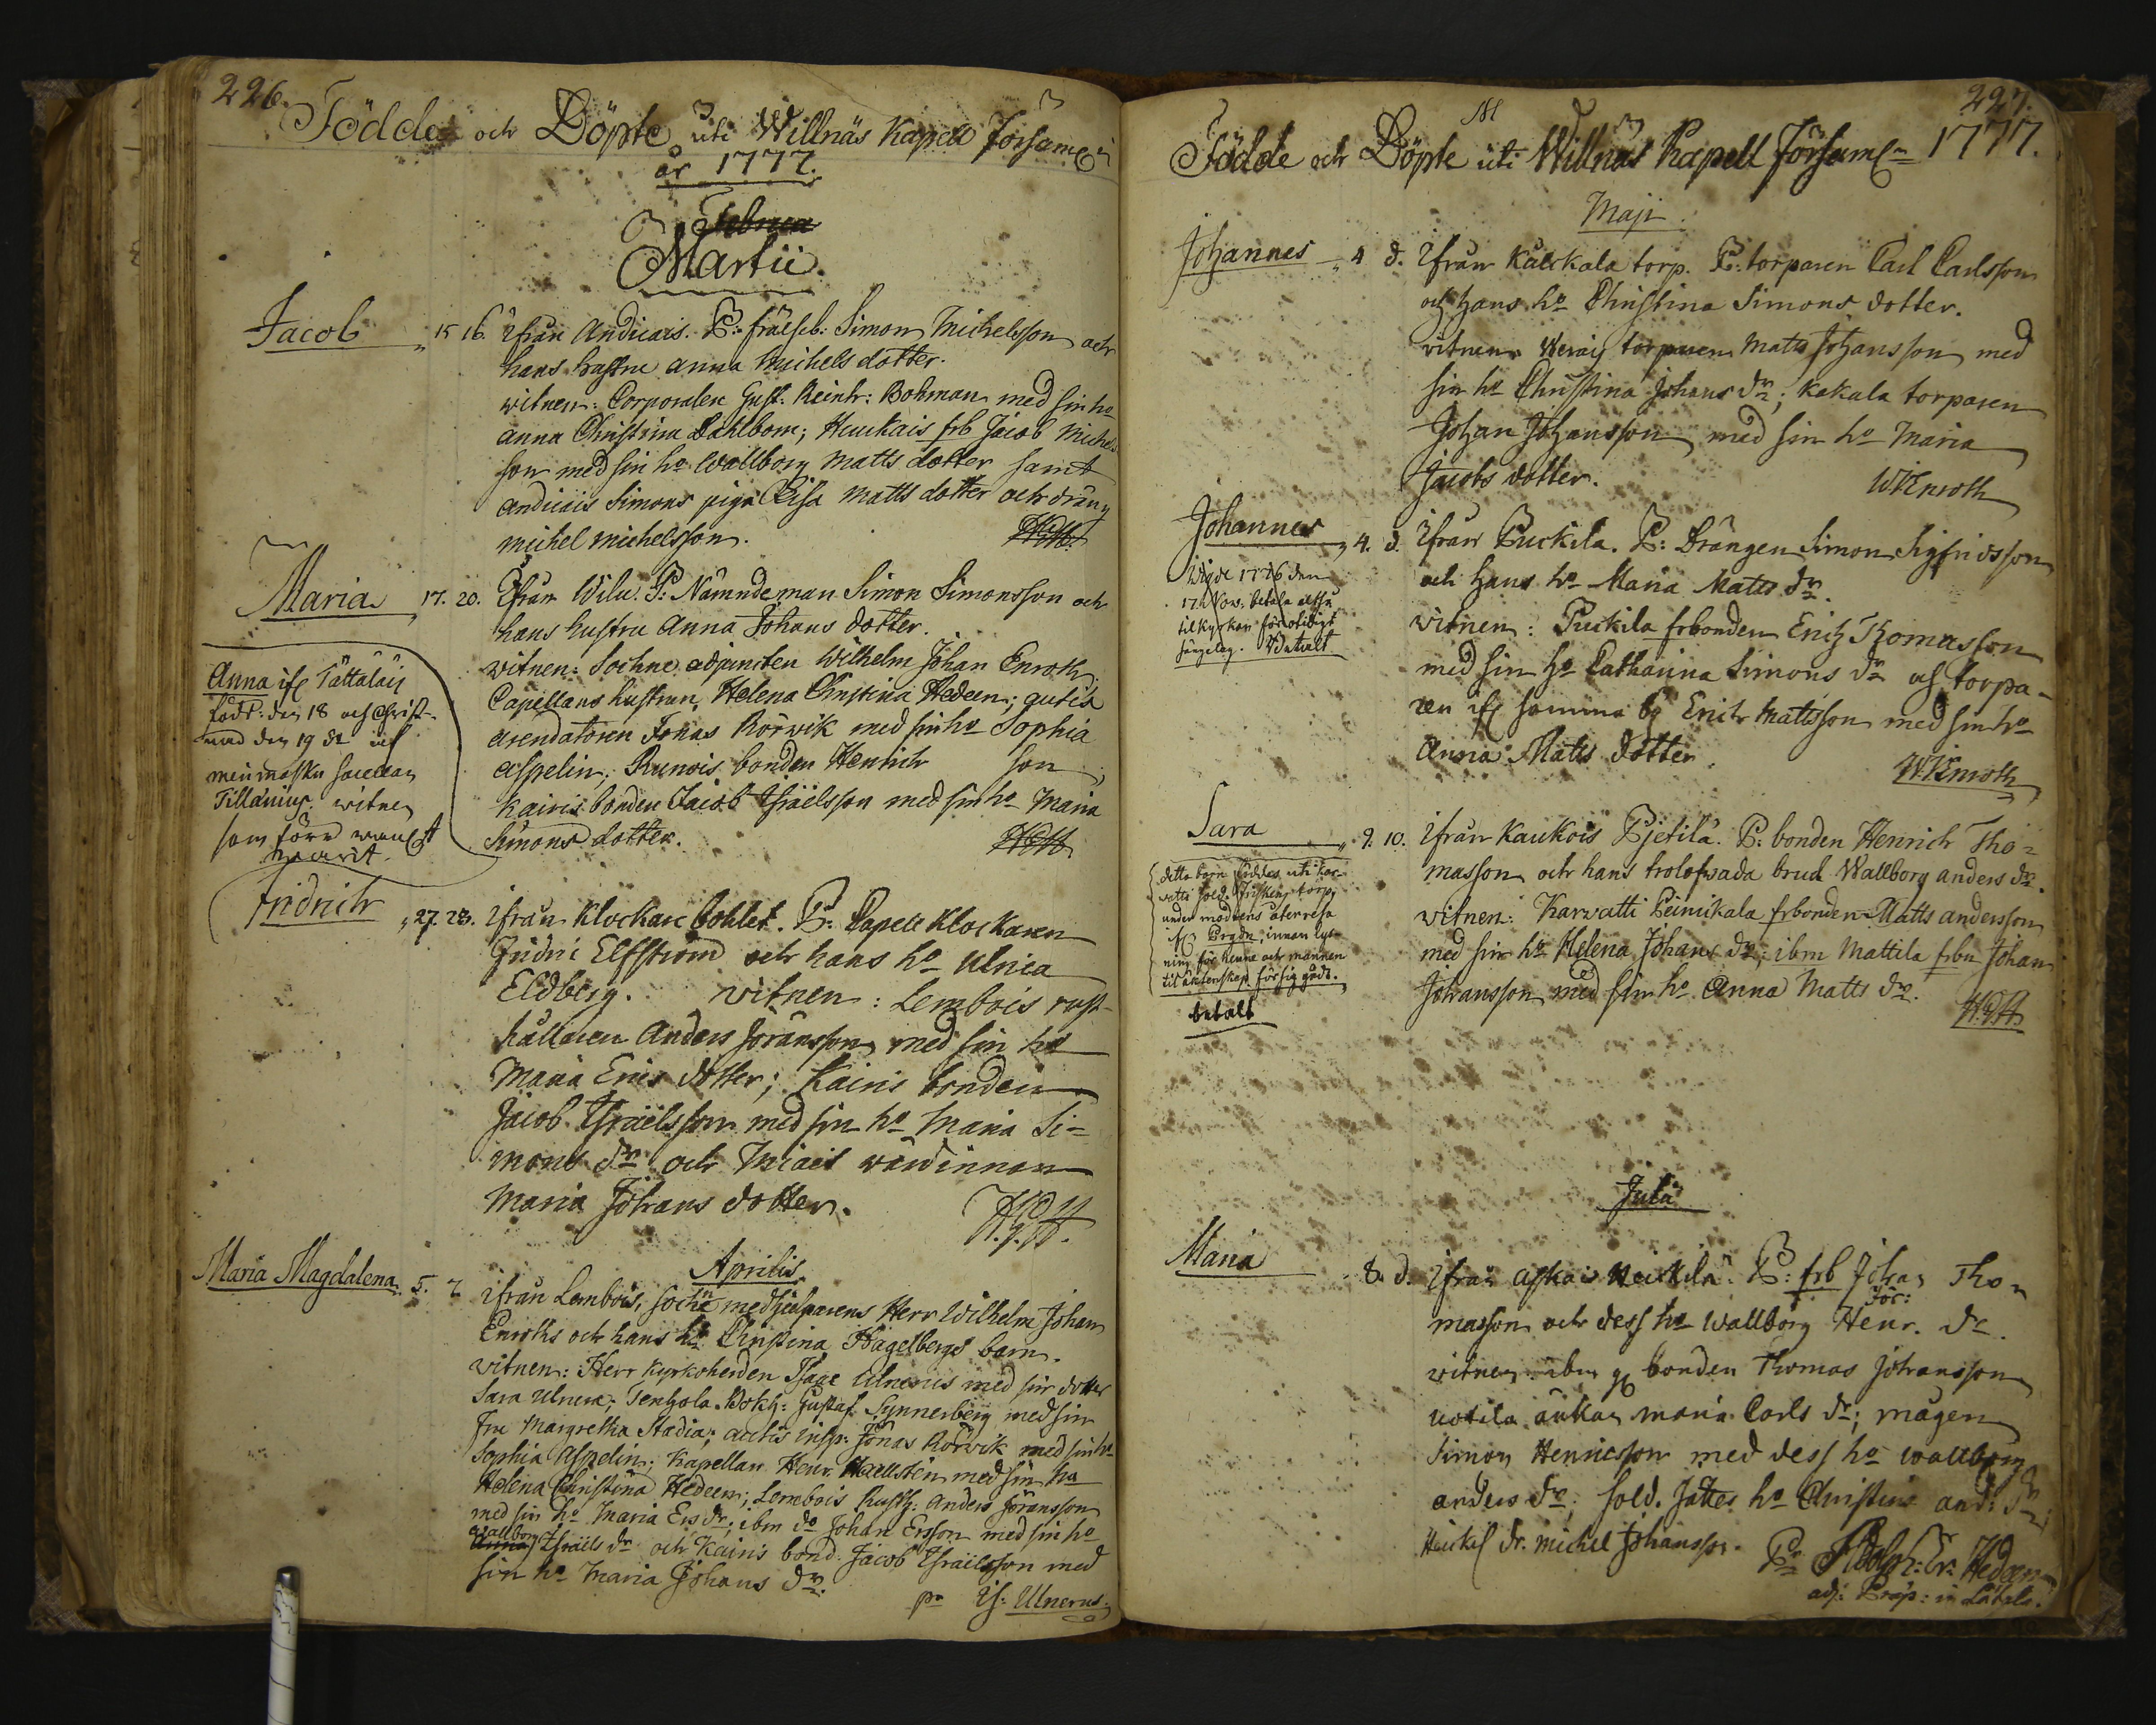 226.
Födde och Döpte uti Willnäs Kapell Församl:
år 1777.
Martii.
Jacob 15 16. ifrån Andicais. P: frälseb: Simon Michelsson och
hans hustru Anna Michels dotter.
witnen: Corporalen Gust: Reinh: Bohman med sin ho
Anna Christina Dahlbom; Huukais frb Jacob Michels
son med sin ho Wallborg Matts dotter samt
Andicais Simons piga Lisa Matts dotter och dräng
Michel Michelsson.
Maria 17. 20. Ifrån Wilu. P: Nämndeman Simon Simonsson och
hans hustru Anna Johans dotter.
witnen: Sochne adjuncten Wilhelm Johan Enroth;
Capellans hustrun, Helena Christina Hedeen;
arendatoren Jonas Rörwik med sin ho Sophia
Aspelin; Runois bonden Henrich son;
Kairis bonden Jacob Israelsson med sin ho Maria
Simons dotter.
Anna
född: den 18 och Christ-
nad den 19 af
Tillænius. witnen
Fridrich 27. 28. ifrån Klockare bohlet. P: Capell Klockaren
Fridric Elfström och hans ho Ulrica
Eldberg. witnen: Lembois rust-
hållaren Anders Jöransson med sin ho
Maria Erics dotter; Kairis bonden
Jacob Israelsson med sin ho Maria Si=
mons dr och wärdinnan
Maria Johans dotter.
Aprilis
Maria Magdalena. 5. 7 ifrån Lembois, Sochne medhjelparens Herr Wilhelm Johan
Enroths och hans ho Christina Hagelbergs barn.
witnen: Herr Kyrkoherden Isaac Ulnerus med sin dotter
Sara Ulnera; Bokh: Gustaf Synnerberg med sin
fru Margretha Stadia; insp: Jonas Rörwik med sin ho
Sophia Aspelin; Kapellan Henr. Haellstén med sin ho
Helena Christina Hedeen; Lembois Rusth: Anders Jöransson
med sin ho Maria Ers dr; ibm do Johan Ersson med sin ho
Wallborg Israels dr och Kairis bond: Jacob Israelsson med
sin ho Maria Johans dr.
Is: Ulnerus
227.
Födde och Döpte uti Willnäs Kapell Församln 1777.
Maji
Johannes 4 d. ifrån Kackala torp. P: torparen Carl Carlsson
och hans ho Christina Simons dotter.
witnen torparen Matts Johansson med
sin ho Christina Johans dr; Kakala torparen
Johan Johansson med sin ho Maria
Jacobs dotter. WJEnroth
Johannes 4. d. ifrån Puckila. P: Drängen Simon Sigfridsson
och hans ho Maria Matts dr.
witnen: Puckila frbonden Erich Thomasson
med sin ho Catharina Simons dr och torpa-
ren samma by Erich Mattsson med sin ho
Anna Matts dotter.
WJEnroth
Wigde 1776 den
17 Nov: betala altså
til Kyrkan för otidigt
sängelag. betalt
Sara 9. 10. ifrån Kaukois Pjetilä. P: bonden Henrich Tho=
masson och hans trolofwada brud Wallborg Anders dr.
witnen: Karwatti Peinikala frbonden Matts Andersson
med sin ho Helena Johans dr; ibm Mattila frbn Johan
Johansson med sin ho Anna Matts dr.
detta barn föddes uti
under modrens återresa
innan lys-
ning för henne och mannen
til äktenskap för sig gådt.
betalt
Julii
Maria 8. d. ifrån Askais P: frb Johan Tho=
masson och dess ho Wallborg Henr. dr.
witnen ibm bonden Thomas Johansson
änkan Maria Carls dr; mågen
Simon Henricsson med dess ho Wallborg
Anders dr; sold. Jättes ho Christina And: dr;
dr. Michel Johansson.
Adolph: Er: Hedeen